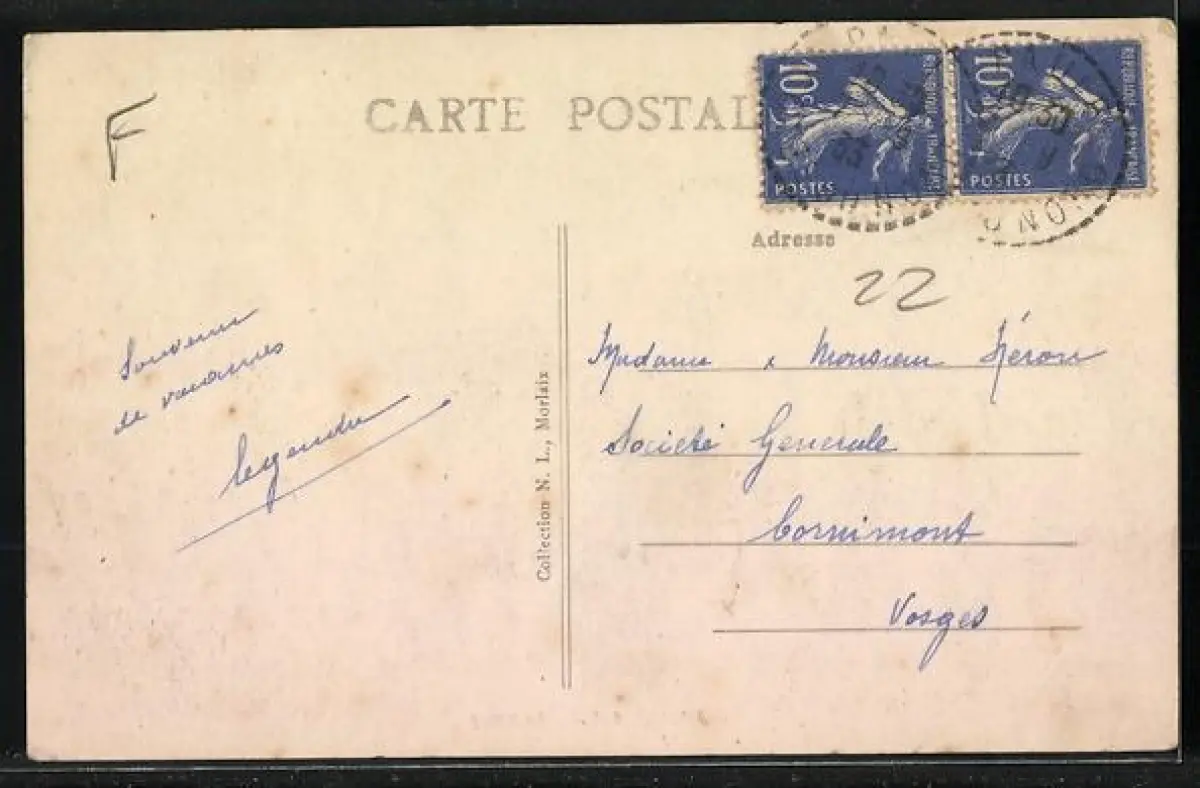 F
CARTE POSTAL
10c
POSTES
10c
POSTES
Adresse
22
Souvenir
de vacances
Legendre
Collection N. L., Morlaix
Madame & Monsieur
Société Generale
Cornimont
Vosges